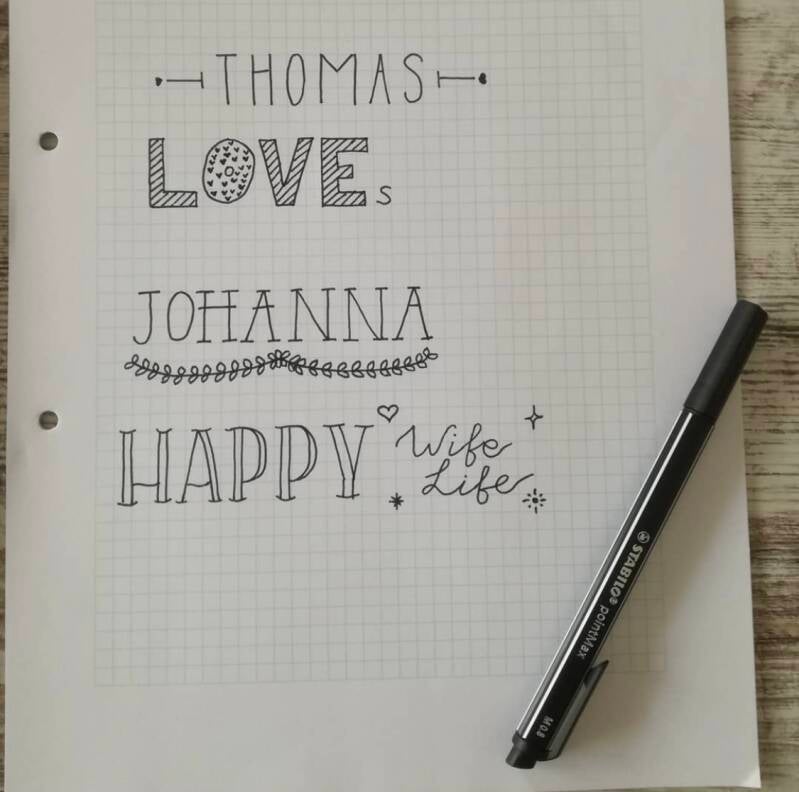 THOMAS
LOVEs
JOHANNA
HAPPY Wife
Life
STABILO® pointMax
M 0.8